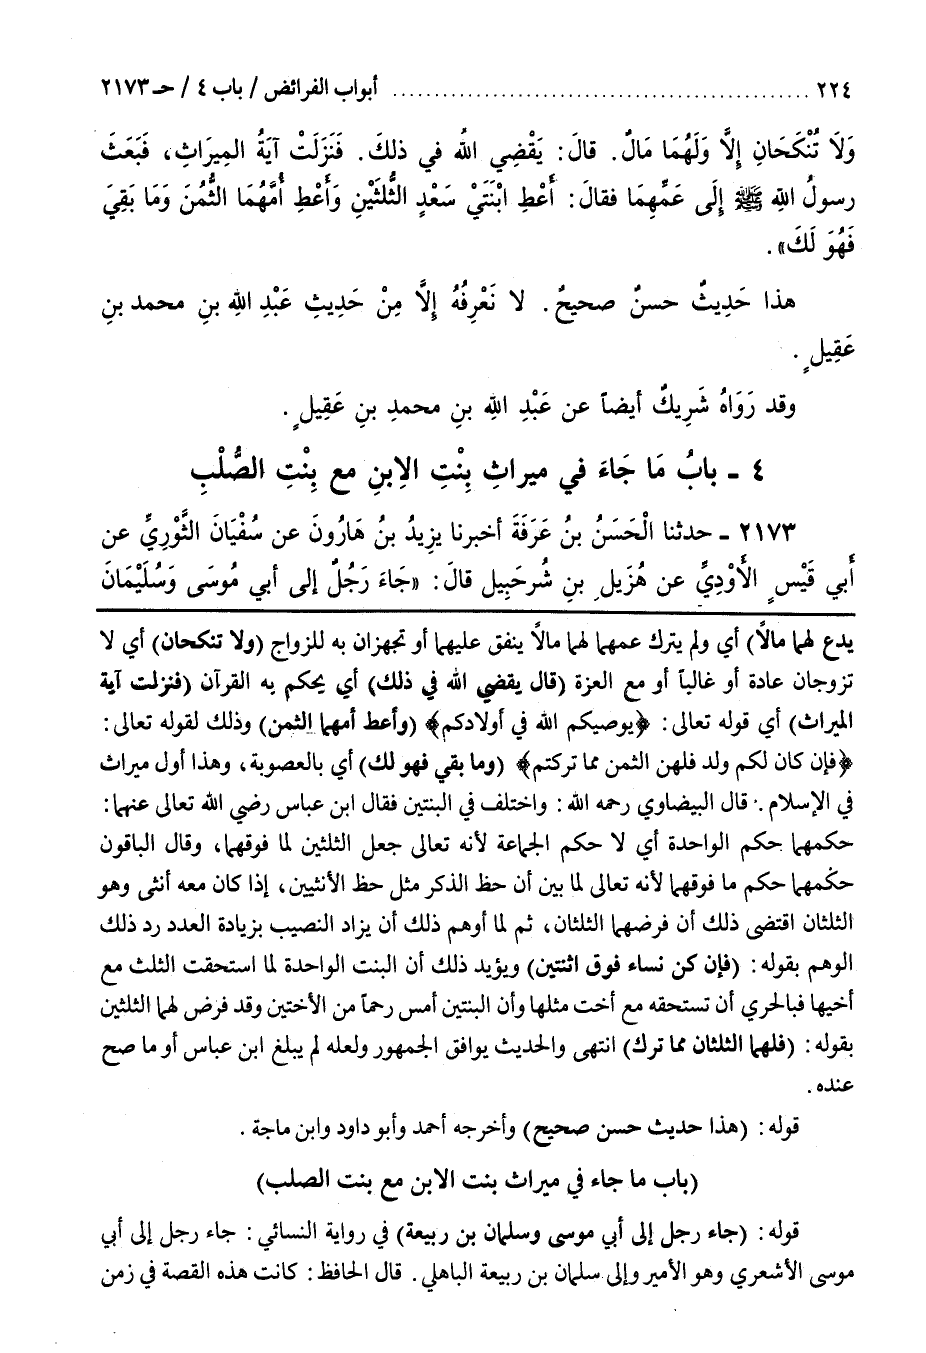 ٢٢٤ ........................ أبواب الفرائض / باب ٤ / حـ ٢١٧٣
وَلَا تُنْكَحَانِ إِلَّا وَلَهُمَا مَالٌ. قالَ: يَقْضِي الله في ذلكَ. فَنَزَلَتْ آيَةُ المِيرَاثِ، فَبَعَثَ
رسولُ اللهِ ﷺ إِلَى عَمِّهِمَا فقالَ: أَعْطِ ابْنَتَيْ سَعْدٍ الثُّلثَيْنِ وَأَعْطِ أُمَّهُمَا الثُّمُنَ وَمَا بَقِيَ
فَهُوَ لَكَ».
هذا حَدِيثٌ حسنٌ صحيحٌ. لا نَعْرِفُهُ إِلَّا مِنْ حَدِيثِ عَبْدِ اللهِ بنِ محمد بنِ
عَقِيلٍ.
وقد رَوَاهُ شَرِيكٌ أيضاً عن عَبْدِ اللهِ بنِ محمدِ بنِ عَقِيلٍ.
٤ - بابُ مَا جَاءَ في ميراثِ بِنْتِ الاِبنِ مع بِنْتِ الصُّلْبِ
٢١٧٣ - حدثنا الْحَسَنُ بنُ عَرَفَةَ أخبرنا يزِيدُ بنُ هَارُونَ عن سُفْيَانَ الثَّوْرِيِّ عن
أَبي قَيْسٍ الأَوْدِيِّ عن هُزَيلِ بنِ شُرحَبِيل قالَ: «جَاءَ رَجُلٌ إلى أبي مُوسَى وَسُلَيْمَانَ
يدع لهما مالاً) أي ولم يترك عمهما لهما مالاً ينفق عليهما أو تجهزان به للزواج (ولا تنكحان) أي لا
تزوجان عادة أو غالباً أو مع العزة (قال يقضي الله في ذلك) أي يحكم به القرآن (فنزلت آية
الميراث) أي قوله تعالى: ﴿يوصيكم الله في أولادكم﴾ (وأعط أمهما الثمن) وذلك لقوله تعالى:
﴿فإن كان لكم ولد فلهن الثمن مما تركتم﴾ (وما بقي فهو لك) أي بالعصوبة، وهذا أول ميراث
في الإسلام. قال البيضاوي رحمه الله: واختلف في البنتين فقال ابن عباس رضي الله تعالى عنهما:
حكمهما حكم الواحدة أي لا حكم الجماعة لأنه تعالى جعل الثلثين لما فوقهما، وقال الباقون
حكمهما حكم ما فوقهما لأنه تعالى لما بين أن حظ الذكر مثل حظ الأنثيين، إذا كان معه أنثى وهو
الثلثان اقتضى ذلك أن فرضهما الثلثان، ثم لما أوهم ذلك أن يزاد النصيب بزيادة العدد رد ذلك
الوهم بقوله: (فإن كن نساء فوق اثنتين) ويؤيد ذلك أن البنت الواحدة لما استحقت الثلث مع
أخيها فبالحري أن تستحقه مع أخت مثلها وأن البنتين أمس رحماً من الأختين وقد فرض لهما الثلثين
بقوله: (فلهما الثلثان مما ترك) انتهى والحديث يوافق الجمهور ولعله لم يبلغ ابن عباس أو ما صح
عنده.
قوله: (هذا حديث حسن صحيح) وأخرجه أحمد وأبو داود وابن ماجة.
(باب ما جاء في ميراث بنت الابن مع بنت الصلب)
قوله: (جاء رجل إلى أبي موسى وسلمان بن ربيعة) في رواية النسائي: جاء رجل إلى أبي
موسى الأشعري وهو الأمير وإلى سلمان بن ربيعة الباهلي. قال الحافظ: كانت هذه القصة في زمن